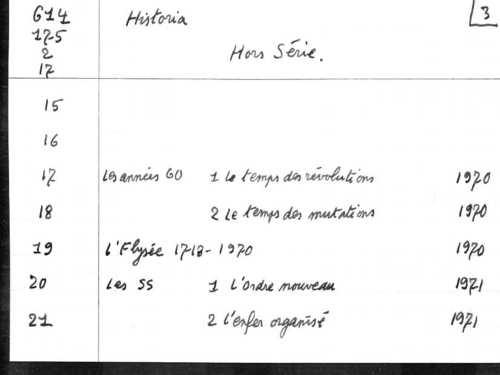 G14 Historia 3
17-5
2 Hors Série.
17
15
16
17 Les années 60 1 Le temps des révolutions 1970
18 2 Le temps des mutations 1970
19 L'Elysée 1718-1970 1970
20 Les SS 1 L'ordre nouveau 1971
21 2 L'enfer organisé 1971